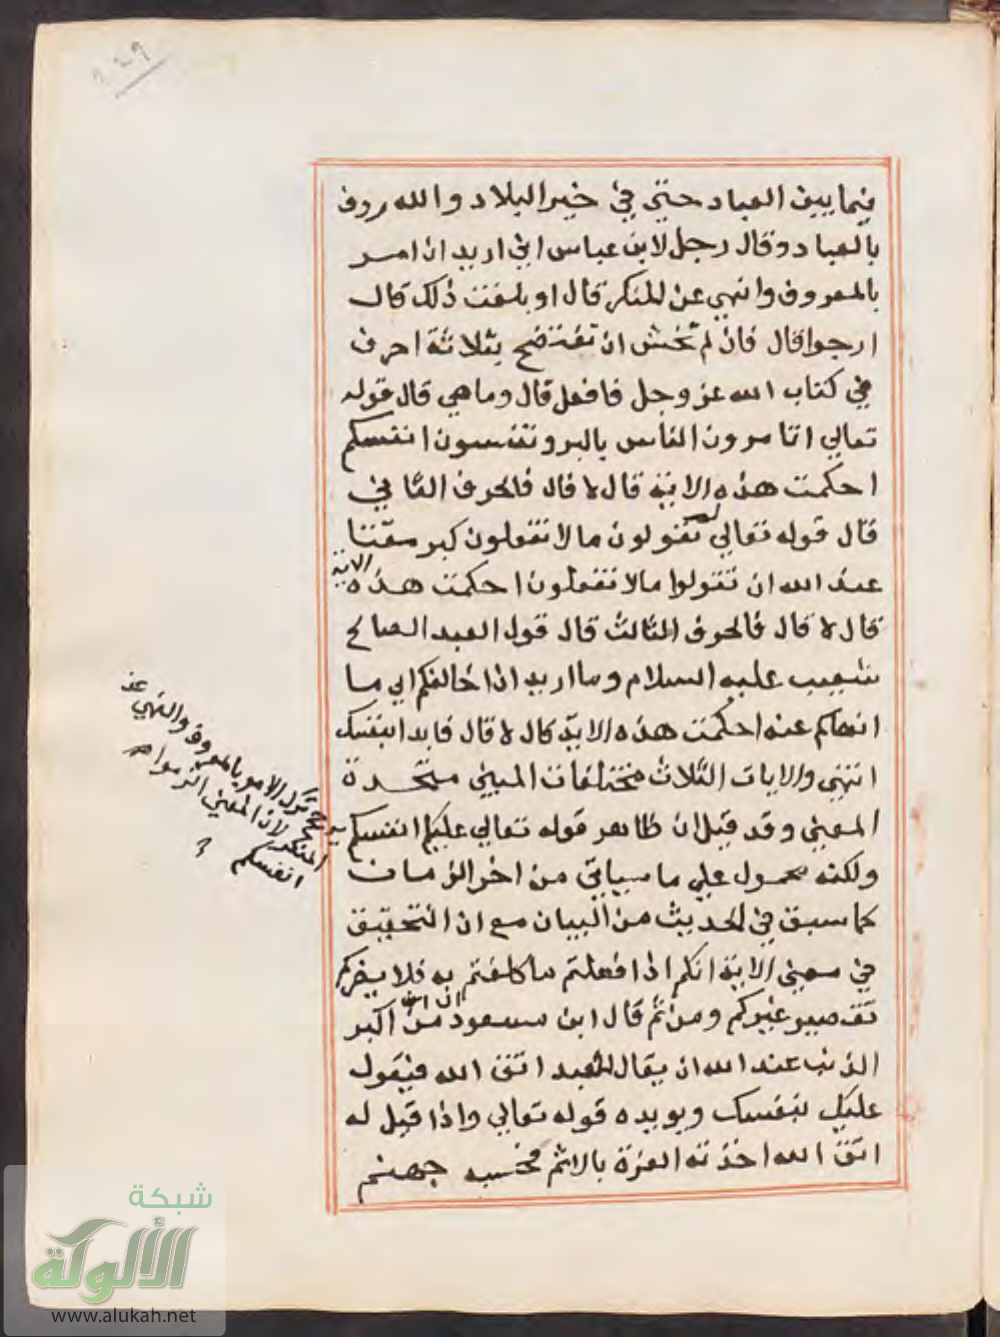 فيما بين العباد حتى في خير البلاد والله رؤف
بالعباد وقال رجل لابن عباس اني اريد ان امر
بالمعروف وانهي عن المنكر قال اوبلغت ذلك قال
ارجوا قال فان لم تخش ان تفتضح بثلاثة احرف
في كتاب الله عز وجل فافعل قال وما هي قال قوله
تعالي اتامرون الناس بالبر وتنسون انفسكم
احكمت هذه الاية قال لا قال فالحرف الثاني
قال قوله تعالي لم تقولون ما لا تفعلون كبر مقتا
عند الله ان تقولوا مالا تفعلون احكمت هذه الاية
قال لا قال فالحرف الثالث قال قول العبد الصالح
شعيب عليه السلام وما اريد ان اخالفكم الي ما
انهاكم عنه احكمت هذه الاية قال لا قال فابدا بنفسك
انتهي والايات الثلاث مختلفات المبني متحدة
المعني وقد قيل ان ظاهر قوله تعالي عليكم انفسكم
يرجح ترك الامر بالمعروف والنهي عن
المنكر لان المعني الزموا امر
انفسكم
ولكنه محمول علي ما سياتي من اخر الزمان
كما سبق في الحديث من البيان مع ان التحقيق
في معني الاية انكم اذا فعلتم ما كلفتم به فلا يضركم
تقصير غيركم ومن ثم قال ابن مسعود ان من اكبر
الذنب عند الله ان يقال للعبد اتق الله فيقول
عليك بنفسك ويويده قوله تعالي واذا قيل له
اتق الله اخذته العزة بالاثم فحسبه جهنم
شبكة
الألوكة
www.alukah.net